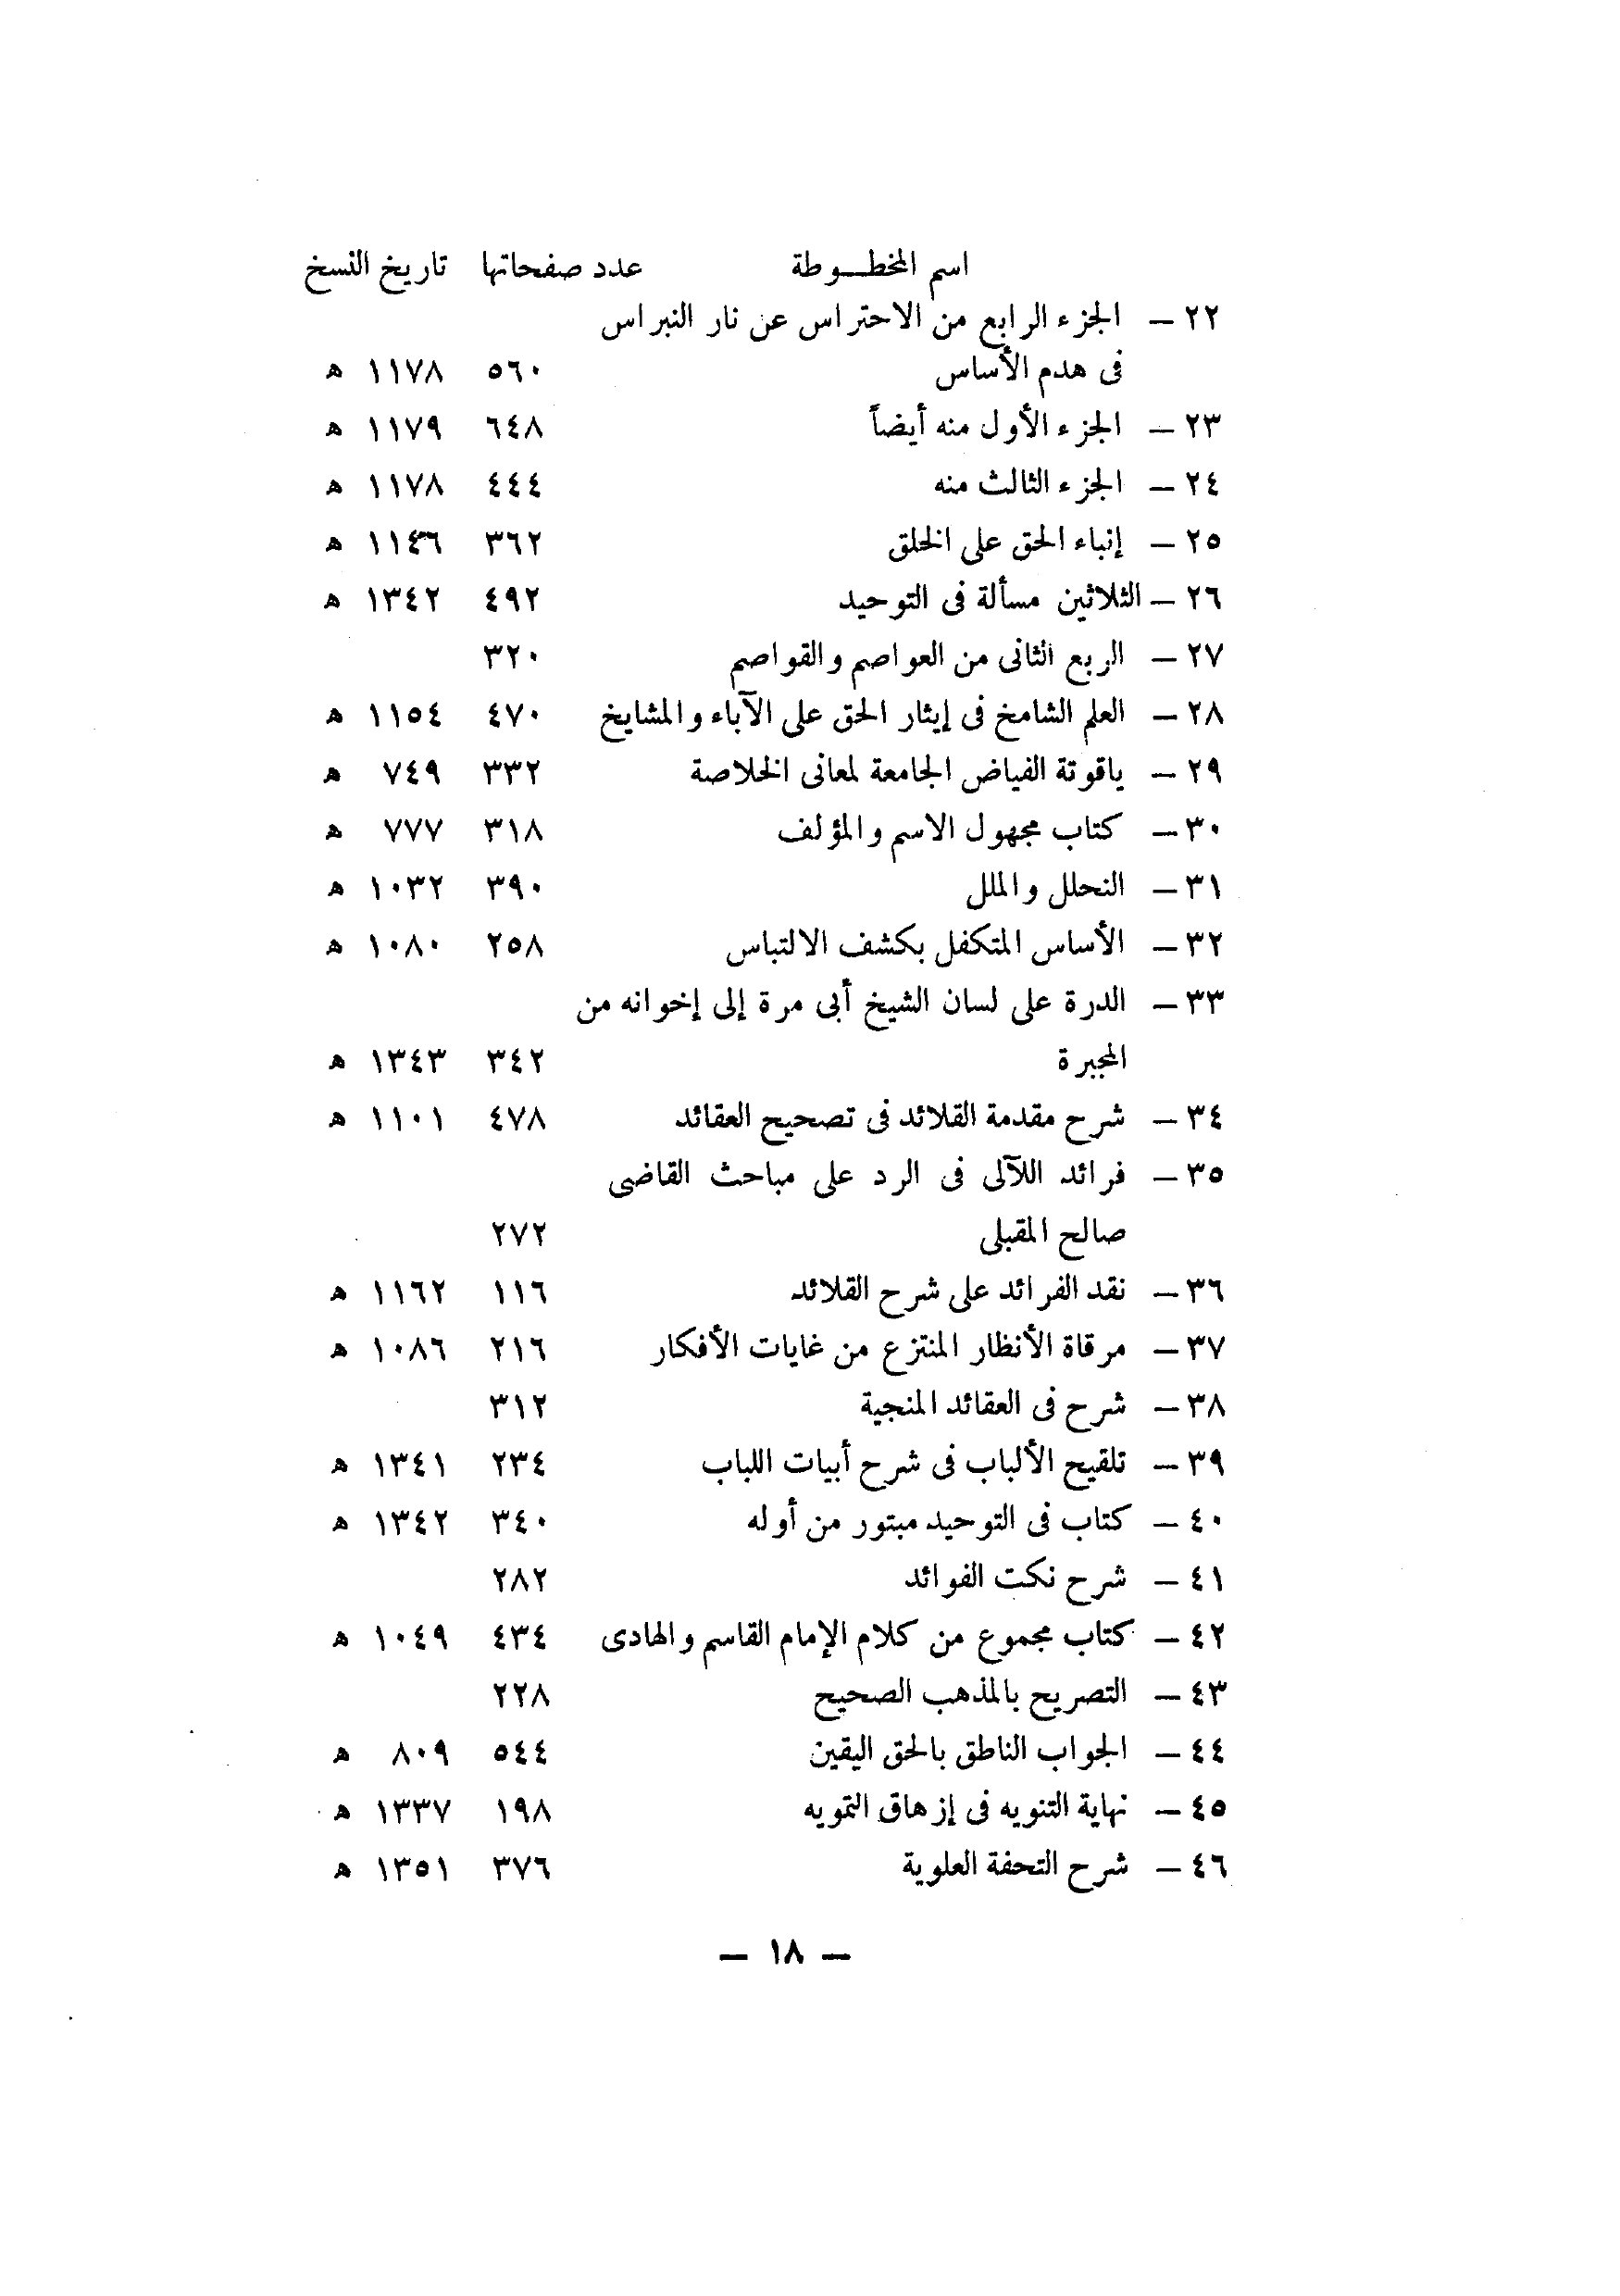 اسم المخطـــوطة عدد صفحاتها تاريخ النسخ
٢٢ — الجزء الرابع من الاحتراس عن نار النبراس
فى هدم الأساس ٥٦٠ ١١٧٨ ه
٢٣ — الجزء الأول منه أيضاً ٦٤٨ ١١٧٩ ه
٢٤ — الجزء الثالث منه ٤٤٤ ١١٧٨ ه
٢٥ — إنباء الحق على الخلق ٣٦٢ ١١٤٦ ه
٢٦ — الثلاثين مسألة فى التوحيد ٤٩٢ ١٣٤٢ ه
٢٧ — الربع الثانى من العواصم والقواصم ٣٢٠
٢٨ — العلم الشامخ فى إيثار الحق على الآباء والمشايخ ٤٧٠ ١١٥٤ ه
٢٩ — ياقوتة الفياض الجامعة لمعانى الخلاصة ٣٣٢ ٧٤٩ ه
٣٠ — كتاب مجهول الاسم والمؤلف ٣١٨ ٧٧٧ ه
٣١ — النحلل والملل ٣٩٠ ١٠٣٢ ه
٣٢ — الأساس المتكفل بكشف الالتباس ٢٥٨ ١٠٨٠ ه
٣٣ — الدرة على لسان الشيخ أبى مرة إلى إخوانه من
المجبرة ٣٤٢ ١٣٤٣ ه
٣٤ — شرح مقدمة القلائد فى تصحيح العقائد ٤٧٨ ١١٠١ ه
٣٥ — فرائد اللآلى فى الرد على مباحث القاضى
صالح المقبلى ٢٧٢
٣٦ — نقد الفرائد على شرح القلائد ١١٦ ١١٦٢ ه
٣٧ — مرقاة الأنظار المنتزع من غايات الأفكار ٢١٦ ١٠٨٦ ه
٣٨ — شرح فى العقائد المنجية ٣١٢
٣٩ — تلقيح الألباب فى شرح أبيات اللباب ٢٣٤ ١٣٤١ ه
٤٠ — كتاب فى التوحيد مبتور من أوله ٣٤٠ ١٣٤٢ ه
٤١ — شرح نكت الفوائد ٢٨٢
٤٢ — كتاب مجموع من كلام الإمام القاسم والهادى ٤٣٤ ١٠٤٩ ه
٤٣ — التصريح بالمذهب الصحيح ٢٢٨
٤٤ — الجواب الناطق بالحق اليقين ٥٤٤ ٨٠٩ ه
٤٥ — نهاية التنويه فى إزهاق التمويه ١٩٨ ١٣٣٧ ه
٤٦ — شرح التحفة العلوية ٣٧٦ ١٣٥١ ه
— ١٨ —